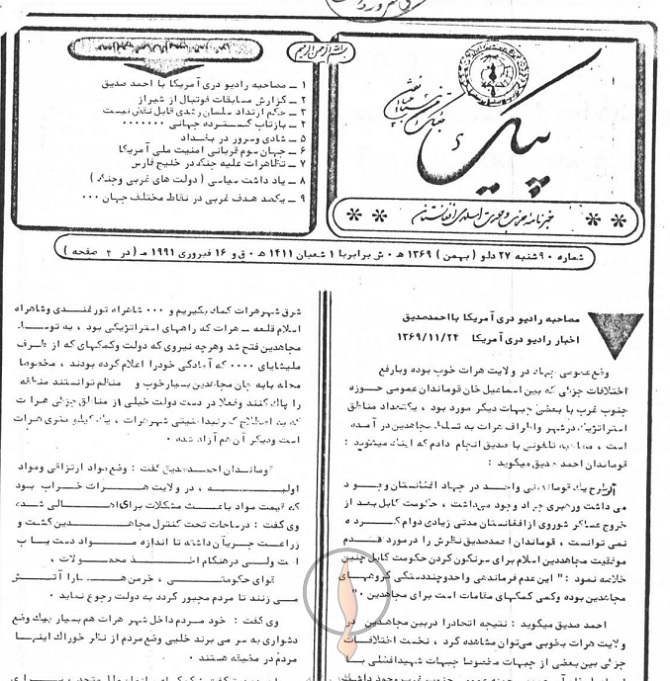 بسم الله الرحمن الرحیم
پیک
خبرنامه حزبی و جمعیت اسلامی افغانستان
شماره ۹۰ شنبه ۲۷ دلو ( بهمن ) ۱۳۶۹ هـ ش برابر با ۱ شعبان ۱۴۱۱ هـ ق و ۱۶ فبروری ۱۹۹۱ مـ ( در ۴ صفحه )
۱ ــ مصاحبه رادیو دری آمریکا با احمد صدیق
۲ ــ گزارش مسابقات فوتبال از شیراز
۳ ــ حکم ارتداد سلمان رشدی قابل نقض نیست
۴ ــ بازتاب گسترده جهانی ۰۰۰۰۰۰۰
۵ ــ شادی و سرور در بغداد
۶ ــ جهان سوم قربانی امنیت ملی آمریکا
۷ ــ تظاهرات علیه جنگ در خلیج فارس
۸ ــ یاد داشت سیاسی ( دولت های غربی وجنگ )
۹ ــ یکصد هدف غربی در نقاط مختلف جهان ۰۰۰
مصاحبه رادیو دری آمریکا با احمد صدیق
اخبار رادیو دری آمریکا ۱۳۶۹/۱۱/۲۴
وضع عمومی جهاد در ولایت هرات خوب بوده وبا رفع
اختلافات جزئی که بین اسماعیل خان قوماندان عمومی حوزه
جنوب غرب با بعضی جبهات دیگر مورد بود ، یکتعداد مناطق
استراتژیک در شهر و اطراف هرات به تسلط مجاهدین در آمده
است ، مصاحبه تلفونی با صدیق انجام دادم که اینک میشنوید :
قوماندان احمد صدیق میگوید :
اگر طرح یک قوماندانی واحد در جهاد افغانستان وجود
می داشت و رهبری جهاد وجود میداشت ، حکومت کابل بعد از
خروج عساکر شوروی از افغانستان مدتی زیادی دوام کرده
نمی توانست ، قوماندان احمد صدیق نظرش را در مورد عدم
موفقیت مجاهدین اسلام برای سرنگون کردن حکومت کابل چنین
خلاصه نمود : " این عدم فرماندهی واحد و چند دستگی گروههای
مجاهدین بوده وکمی کمکهای مقامات است برای مجاهدین ۰ "
احمد صدیق میگوید : نتیجه اتحاد را در بین مجاهدین در
ولایت هرات بخوبی می توان مشاهده کرد ، نخست اختلافات
جزئی بین بعضی از جبهات مخصوصا جبهات شهید افضلی با
شرق شهر هرات کمک بگیریم و ۰۰۰ شاهراه تورغندی وشاهراه
اسلام قلعه ــ هرات که راههای استراتژیکی بود ، به توسط
مجاهدین فتح شد وهرچه نیروی که دولت وکمکهای که از طرف
ملیشیای ۰۰۰۰ که آمادگی خود را اعلام کرده بودند ، مخصوصا
محله پایه جان مجاهدین بسیار خوب و سالم توانستند منطقه
را پاک کنند وفعلا در دست دولت خیلی از مناطق جزئی هرات
که به اصطلاح کمربند امنیتی شهر هرات ، یک کیلو متری هرات
است ودیگر آن هم آزاد شده ۰
قوماندان احمد صدیق گفت : وضع مواد ارتزاقی ومواد
اولیه ، در ولایت هرات خراب بود
که قیمت مواد باعث مشکلات برای اهالی شده
وی گفت : در ساحات تحت کنترول مجاهدین کشت و
زراعت جریان داشته تا اندازه مواد دستیاب
است ولی در هنگام اخذ محصولات ،
قوای حکومتی ، خرمن ها را آتش
می زنند تا مردم مجبور گردد به دولت رجوع نماید ۰
وی گفت : خود مردم داخل شهر هرات هم بسیار بیک وضع
دشواری به سر می برند خلبی وضع مردم از نظر خوراک اینها
مردم در مضیقه هستند ۰